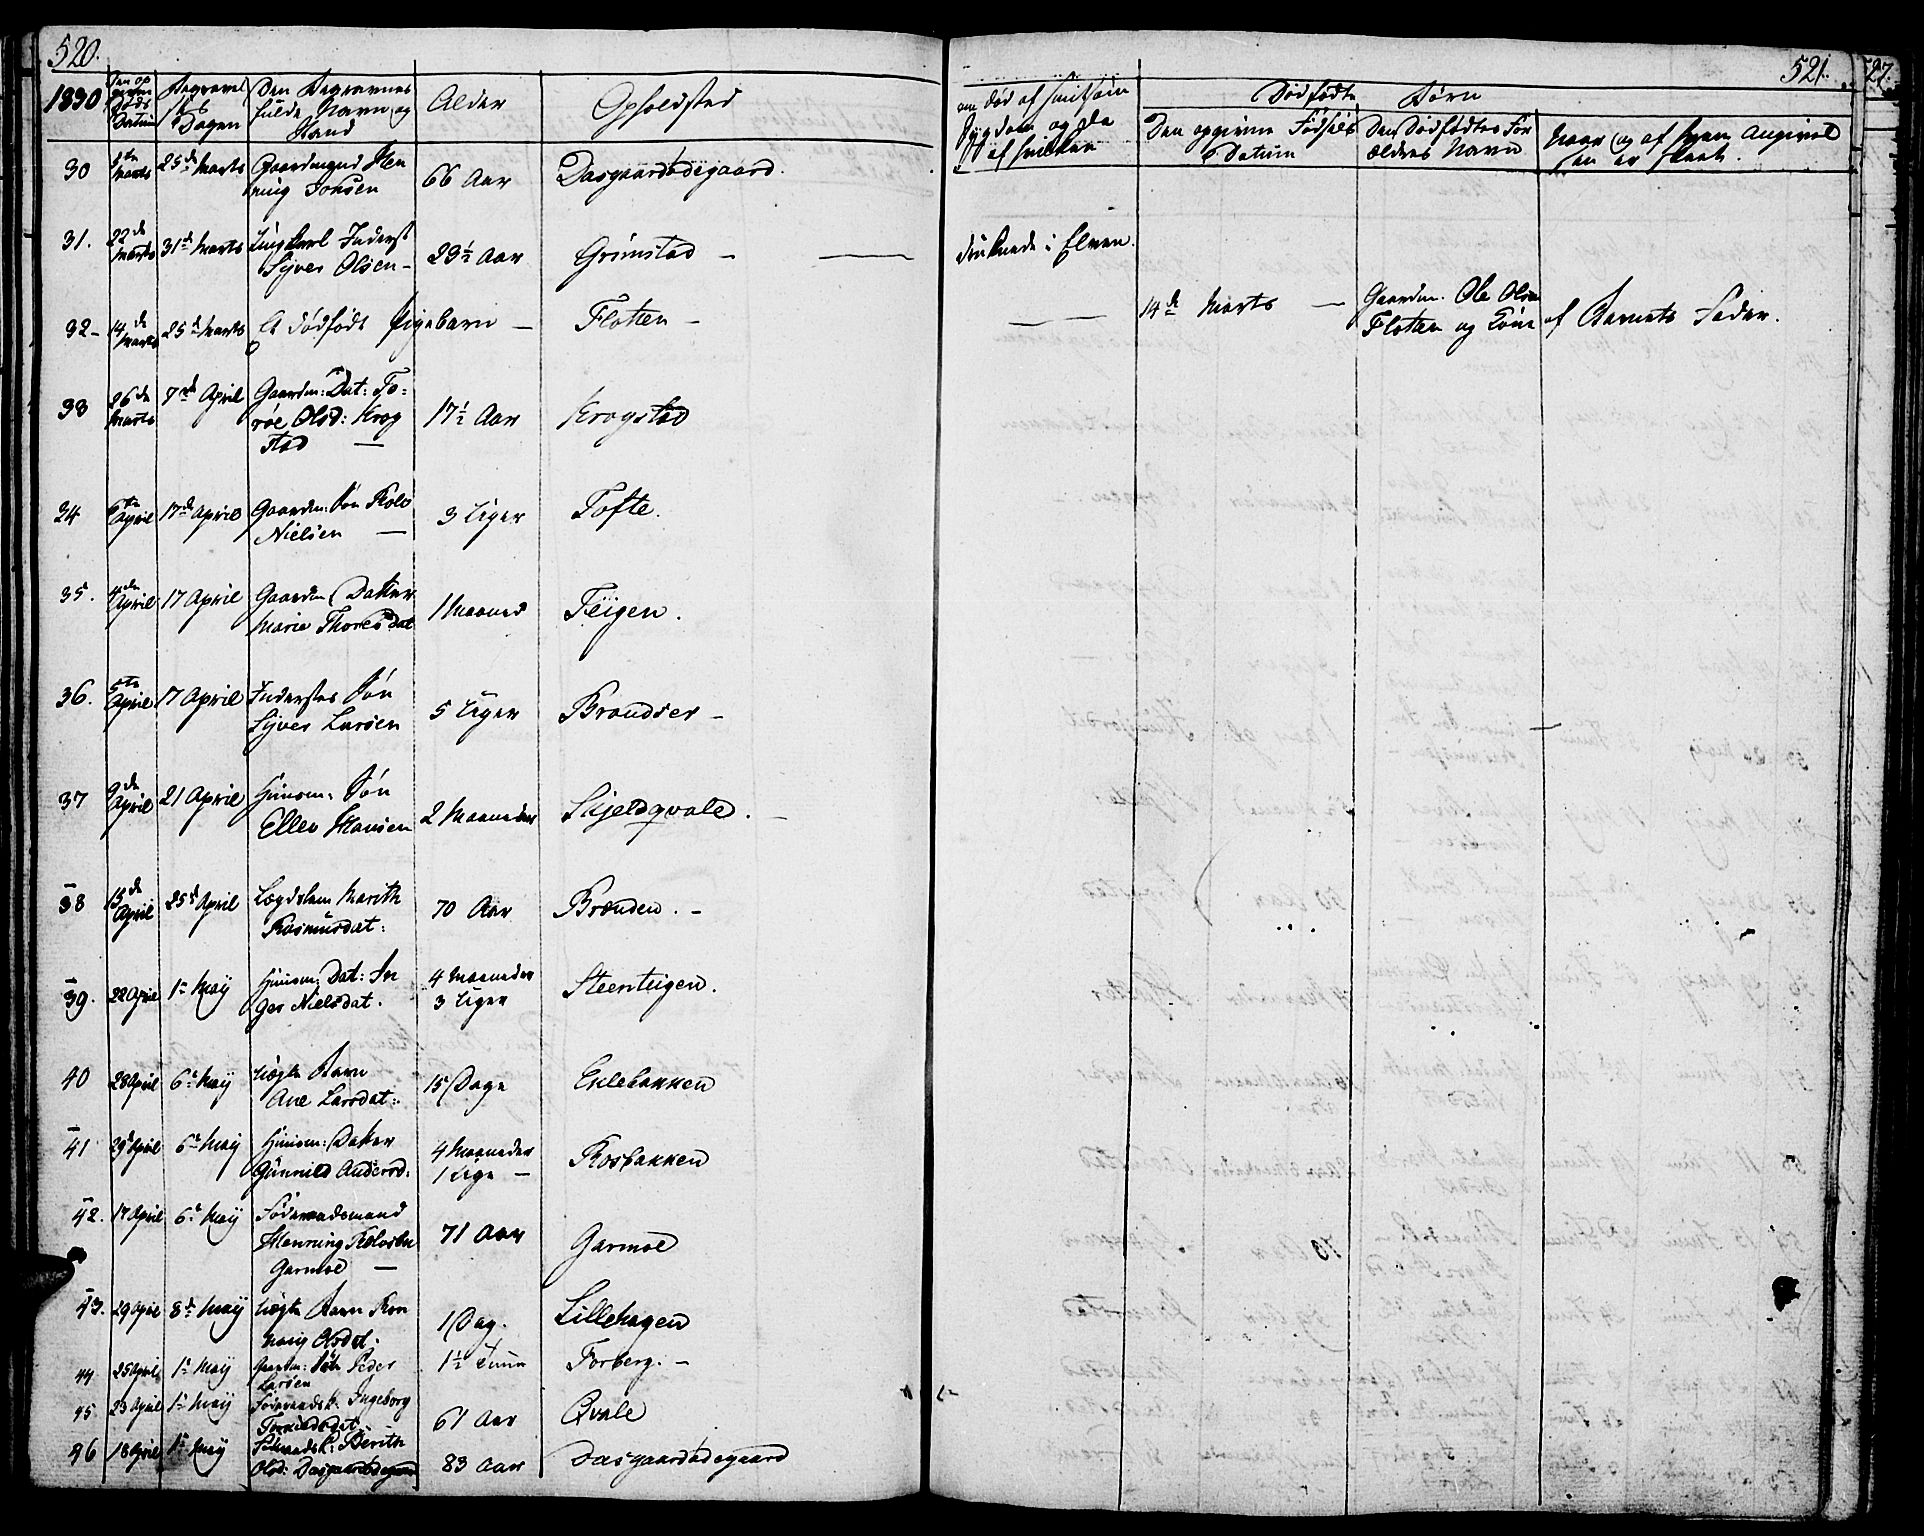 520.
1830
Døds Datum
Begravel
ses
Dagen
Den Begravnes
fulde Navn og
Stand
Alder
Opholdsted
30 Marts 25de Marts Gaardmand Hen
ning Jonsen 66 Aar Dasgaardødegaard.
31. 22de Marts 31de Marts Ungkarl Inderst
Syver Olsen - 23½ Aar Grimstad -
32 - 14de Marts 25de Marts Et dødfødt Pigebarn - Flotten -
33 26de Marts 7de April Gaardm: Dat: To=
røe Olsd: Krog
stad - 17½ Aar Krogstad
34 6te April 17de April Gaardm: Søn Rolv
Nielsen - 3 Uger Tofte.
35. 4de April 17 April Gaardm Datter
Marie Thoresdat 1 Maaned Teigen.
36. 5te April 17 April Inderstes Søn
Syver Larsen 5 Uger Brandser -
37 9de April 21 April Huusm: Søn
Ellev Hansen 2 Maaneder Skjeldqvale. -
38 13de April 25de April Lægdslem Marith
Rasmusdat: 70 Aar Brænden. -
39. 22 April 1te Maij Huusm: Dat: In
ger Nielsdat. 4 Maaneder
3 Uger Steenteigen.
40 28 April 6te Maij Uægte Barn
Ane Larsdat: 15 Dage Eklebakken
41 29 April 6te Maij Huusm: Datter
Gunnild Andersd: 4 Maaneder
1 Uge - Rosbakken
42. 17 April 6te Maij Føderaadsmand
Henning Rolvsen
Garmoe - 71 Aar Garmoe
43. 29 April 8de Maij Uægte Barn Ron
naug Olsdat. 1 Dag. Lillehagen
44 25 April 1te Maij Gaardm: Søn Peder
Larsen 1½ Time Forberg. -
45 23 April 1te Maij Føderaadsk. Ingeborg
Torkildsdat. 61 Aar Qvale
46 18 April 1te Maij Føderaadsk: Berith
Olsd: Dasgaardødegaard 83 Aar Dasgaardødegaard
521.
om død af smitsom
Sygdom og da
af hvilken
Dødfødte Børn
Den opgivne Fødsels
Datum
Den Dødfødtes For
ældres Navn
Naar og af hvem Angivel
sen er skeet.
druknede i Elven.
14de Marts - Gaardm. Ole Olsen
Flotten og Kone af Barnets Fader.
527.